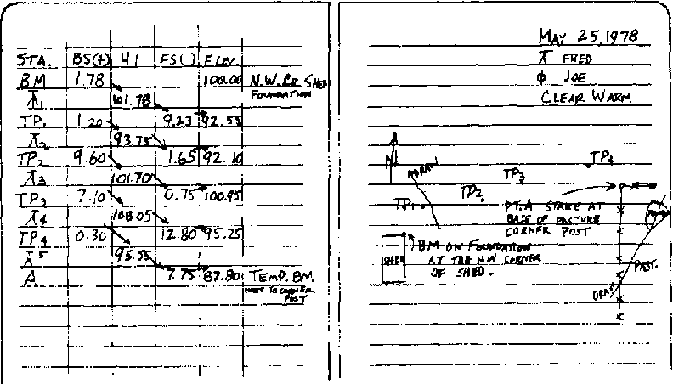 STA. BS(+) HI FS(-) ELEV
BM 1.78 100.00 N.W. CR. SHED
⊼1 101.78 FOUNDATION
TP1 1.20 9.23 92.55
⊼2 93.75
TP2 9.60 1.65 92.10
⊼3 101.70
TP3 7.10 0.75 100.95
⊼4 108.05
TP4 0.30 12.80 95.25
⊼5 95.55
A 7.75 87.80 TEMP. BM.
NEXT TO CORNER
POST
MAY 25, 1978
⊼ FRED
ϕ JOE
CLEAR WARM
N
TP4
TP3
TP2
TP1
PT. A STAKE AT
BASE OF PASTURE
CORNER POST
BM ON FOUNDATION
AT THE NW CORNER
OF SHED.
SHED
PAST.